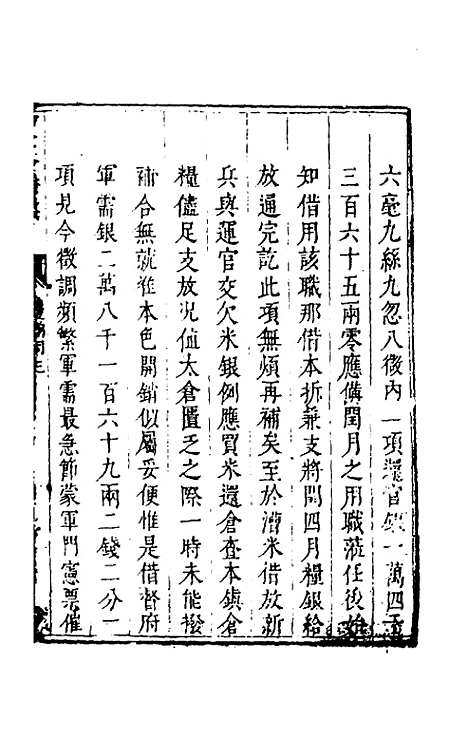 六毫九絲九忽八微內一項還官銀一萬四千
三百六十五兩零應備閏月之用職蒞任後始
知借用該職那借本折兼支將閏四月糧銀給
放通完訖此項頻再補矣至於漕米借放新
兵與運官交欠米銀例應買米還倉查本鎮倉
糧儘足支放况值太倉匱乏之際一時未能撥
補合無就准本色開銷似屬妥便惟是借督府
軍需銀二萬八千一百六十九兩二錢二分一
項見今徵調頻繁軍需最急節蒙軍門憲票催